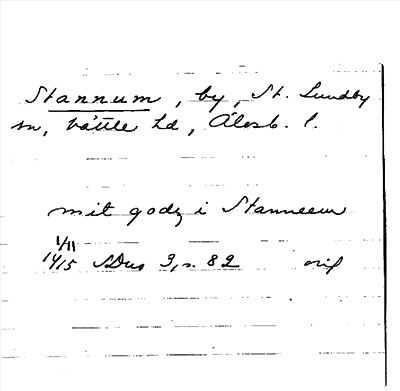 Stannum, by, St. Lundby
sn, Vättle hd, Älvsb. l.
mit godz i Stanneem
1/11
1415 SDns 3, s. 82 orig